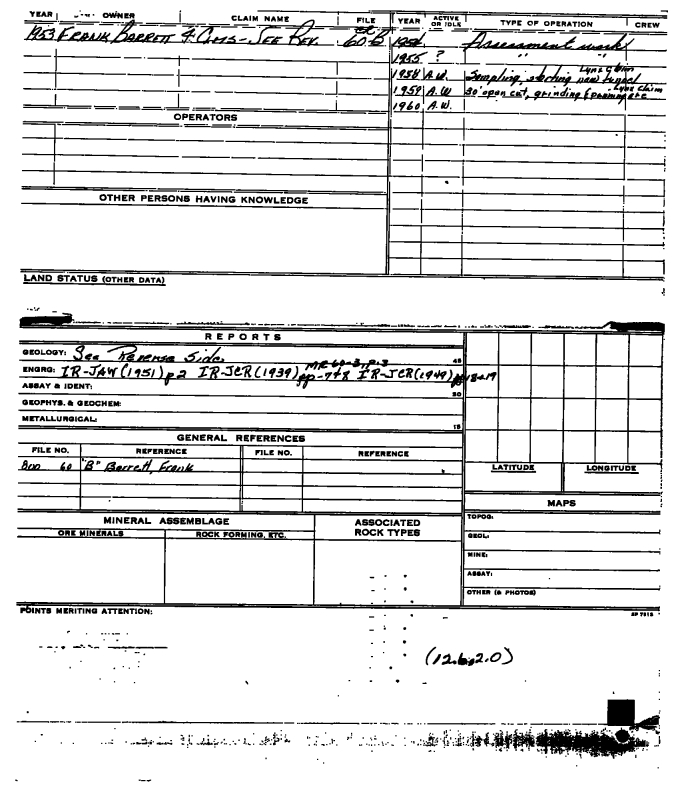 YEAR OWNER CLAIM NAME FILE YEAR ACTIVE OR IDLE TYPE OF OPERATION CREW
1953 FRANK BARRETT 4 Clms - SEE REV. 60-B Assessment work
1955 ? " "
1958 A.W. Sampling, starting new tunnel Lynx Claim
1959 A.W 30' open cut, grinding & panning etc Lynx Claim
1960 A.W.
OPERATORS
OTHER PERSONS HAVING KNOWLEDGE
LAND STATUS (OTHER DATA)
REPORTS
GEOLOGY: See Reverse Side. 45
MR 60-3, p.3
ENGRG: IR-JAW (1951) p2 IR-JCR (1939) pp-7+8 IR-JCR (1949) 18+19
ASSAY & IDENT: 30
GEOPHYS. & GEOCHEM:
METALLURGICAL: 15
GENERAL REFERENCES
FILE NO. REFERENCE FILE NO. REFERENCE
60 "B" Barrett, Frank
LATITUDE LONGITUDE
MAPS
MINERAL ASSEMBLAGE
ORE MINERALS ROCK FORMING, ETC.
ASSOCIATED ROCK TYPES
TOPOG:
GEOL:
MINE:
ASSAY:
OTHER (& PHOTOS)
POINTS MERITING ATTENTION:
SP 7318
(12.6, 2.0)